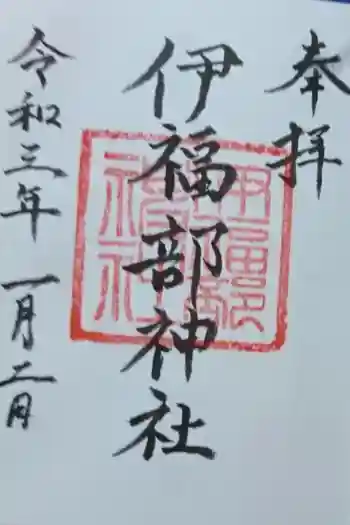 奉拝
伊福部神社
令和三年一月二日
伊福部神社